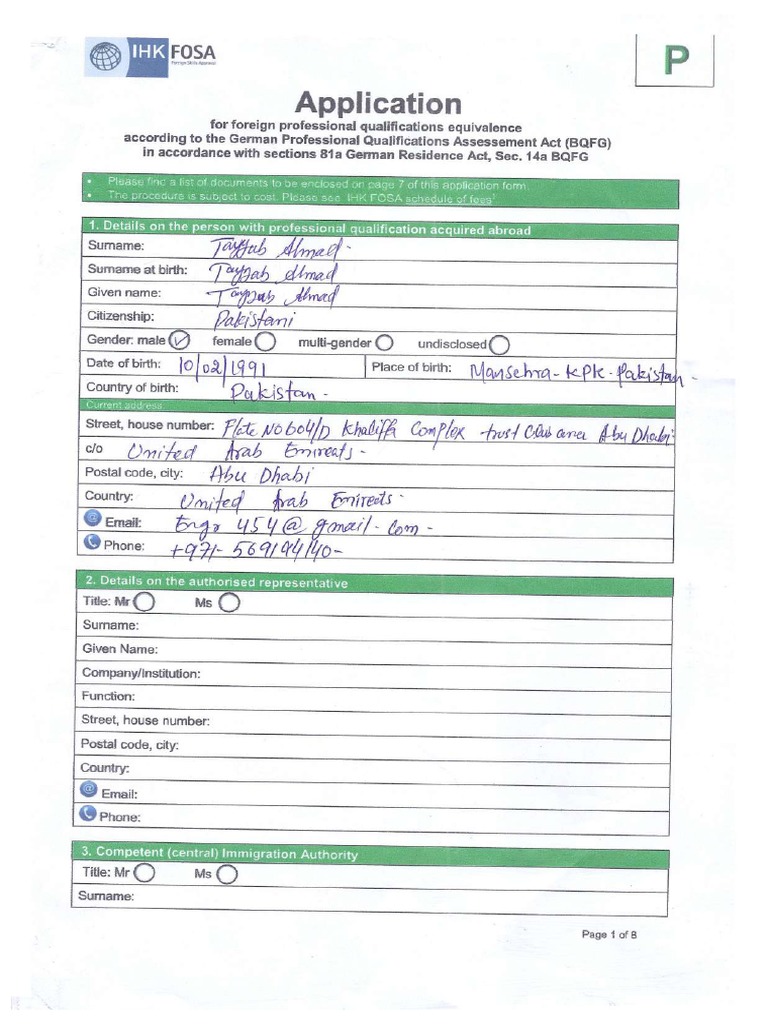 IHK FOSA
Foreign Skills Approval
P
Application
for foreign professional qualifications equivalence
according to the German Professional Qualifications Assessement Act (BQFG)
in accordance with sections 81a German Residence Act, Sec. 14a BQFG
• Please find a list of documents to be enclosed on page 7 of this application form.
• The procedure is subject to cost. Please see IHK FOSA schedule of fees!
1. Details on the person with professional qualification acquired abroad
Surname: Tayyab Ahmad -
Surname at birth: Tayyab Ahmad
Given name: Tayyab Ahmad
Citizenship: Pakistani
Gender: male female multi-gender undisclosed
Date of birth: 10/02/1991 Place of birth: Mansehra - KPK - Pakistan -
Country of birth: Pakistan -
Current address
Street, house number: Flate No 604/D Khaliffa Complex trust Club area Abu Dhabi-
c/o United Arab Emireats -
Postal code, city: Abu Dhabi
Country: United Arab Emireats -
@ Email: Engr 454@gmail-com-
Phone: +971-569194140-
2. Details on the authorised representative
Title: Mr Ms
Surname:
Given Name:
Company/institution:
Function:
Street, house number:
Postal code, city:
Country:
@ Email:
Phone:
3. Competent (central) Immigration Authority
Title: Mr Ms
Surname:
Page 1 of 8